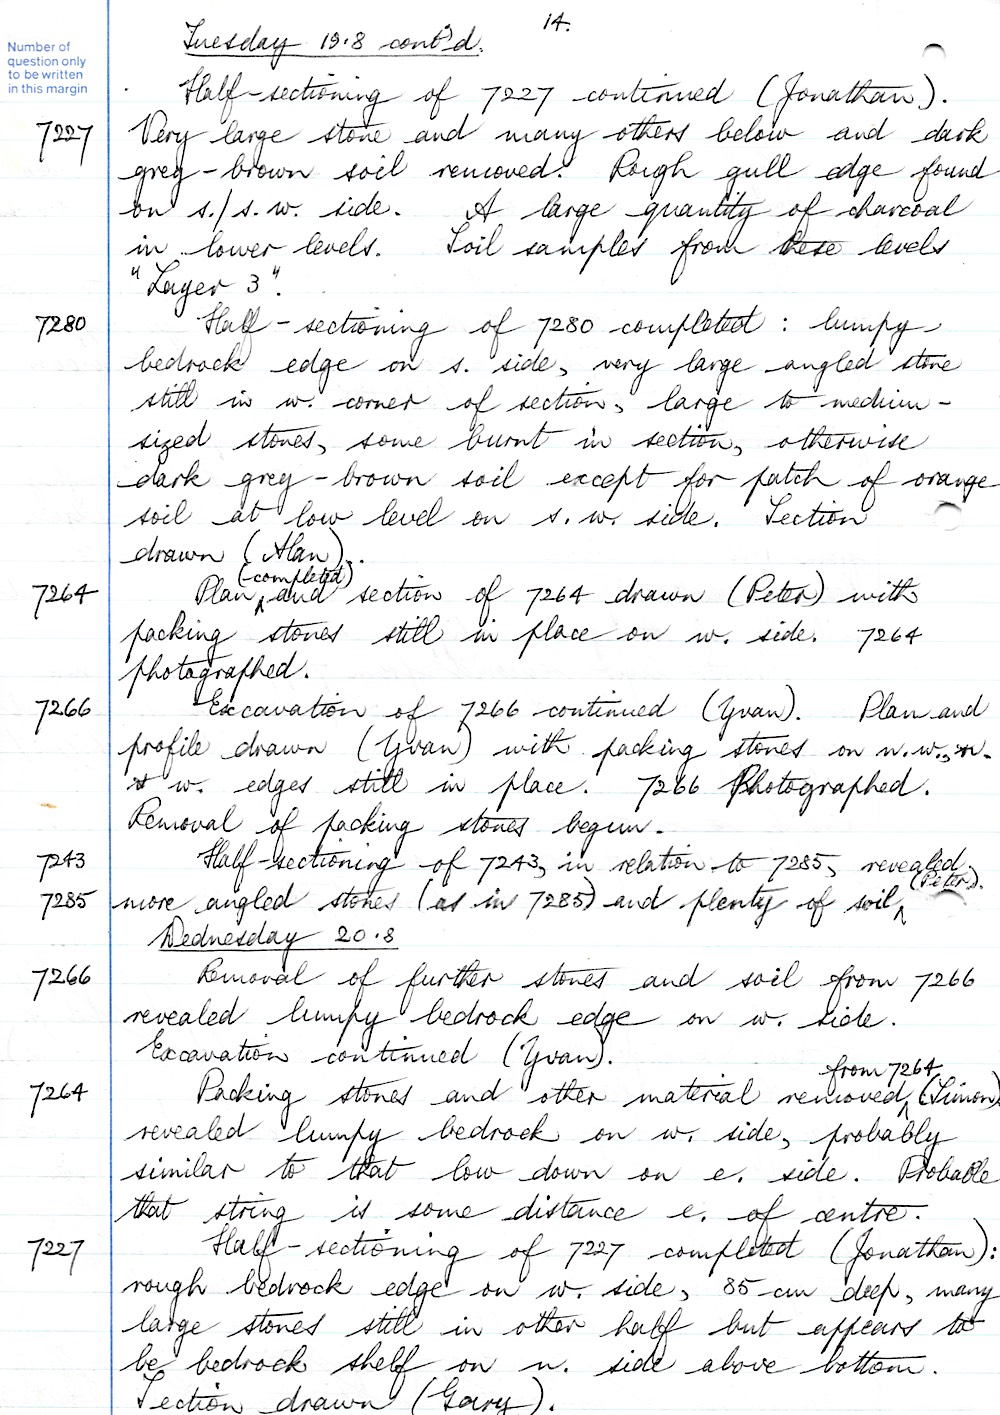 14.
Tuesday 19.8 cont'd.
Number of
question only
to be written
in this margin
Half-sectioning of 7227 continued (Jonathan).
7227 Very large stone and many others below and dark
grey-brown soil removed. Rough gull edge found
on s./s.w. side. A large quantity of charcoal
in lower levels. Soil samples from these levels
"Layer 3".
7280 Half-sectioning of 7280 completed: lumpy
bedrock edge on s. side, very large angled stone
still in w. corner of section, large to medium-
sized stones, some burnt in section, otherwise
dark grey-brown soil except for patch of orange
soil at low level on s.w. side. Section
drawn (Alan).
(-completed)
7264 Plan ^ and section of 7264 drawn (Peter) with
packing stones still in place on w. side. 7264
photographed.
7266 Excavation of 7266 continued (Yvan). Plan and
profile drawn (Yvan) with packing stones on n.w., n.
& w. edges still in place. 7266 Photographed.
Removal of packing stones begun.
7243 Half-sectioning of 7243, in relation to 7285, revealed
(Peter).
7285 more angled stones (as in 7285) and plenty of soil ^
Wednesday 20.8
7266 Removal of further stones and soil from 7266
revealed lumpy bedrock edge on w. side.
Excavation continued (Yvan).
from 7264
7264 Packing stones and other material removed ^ (Simon)
revealed lumpy bedrock on w. side, probably
similar to that low down on e. side. Probable
that string is some distance e. of centre.
7227 Half-sectioning of 7227 completed (Jonathan):
rough bedrock edge on w. side, 85 cm deep, many
large stones still in other half but appears to
be bedrock shelf on n. side above bottom.
Section drawn (Gary).